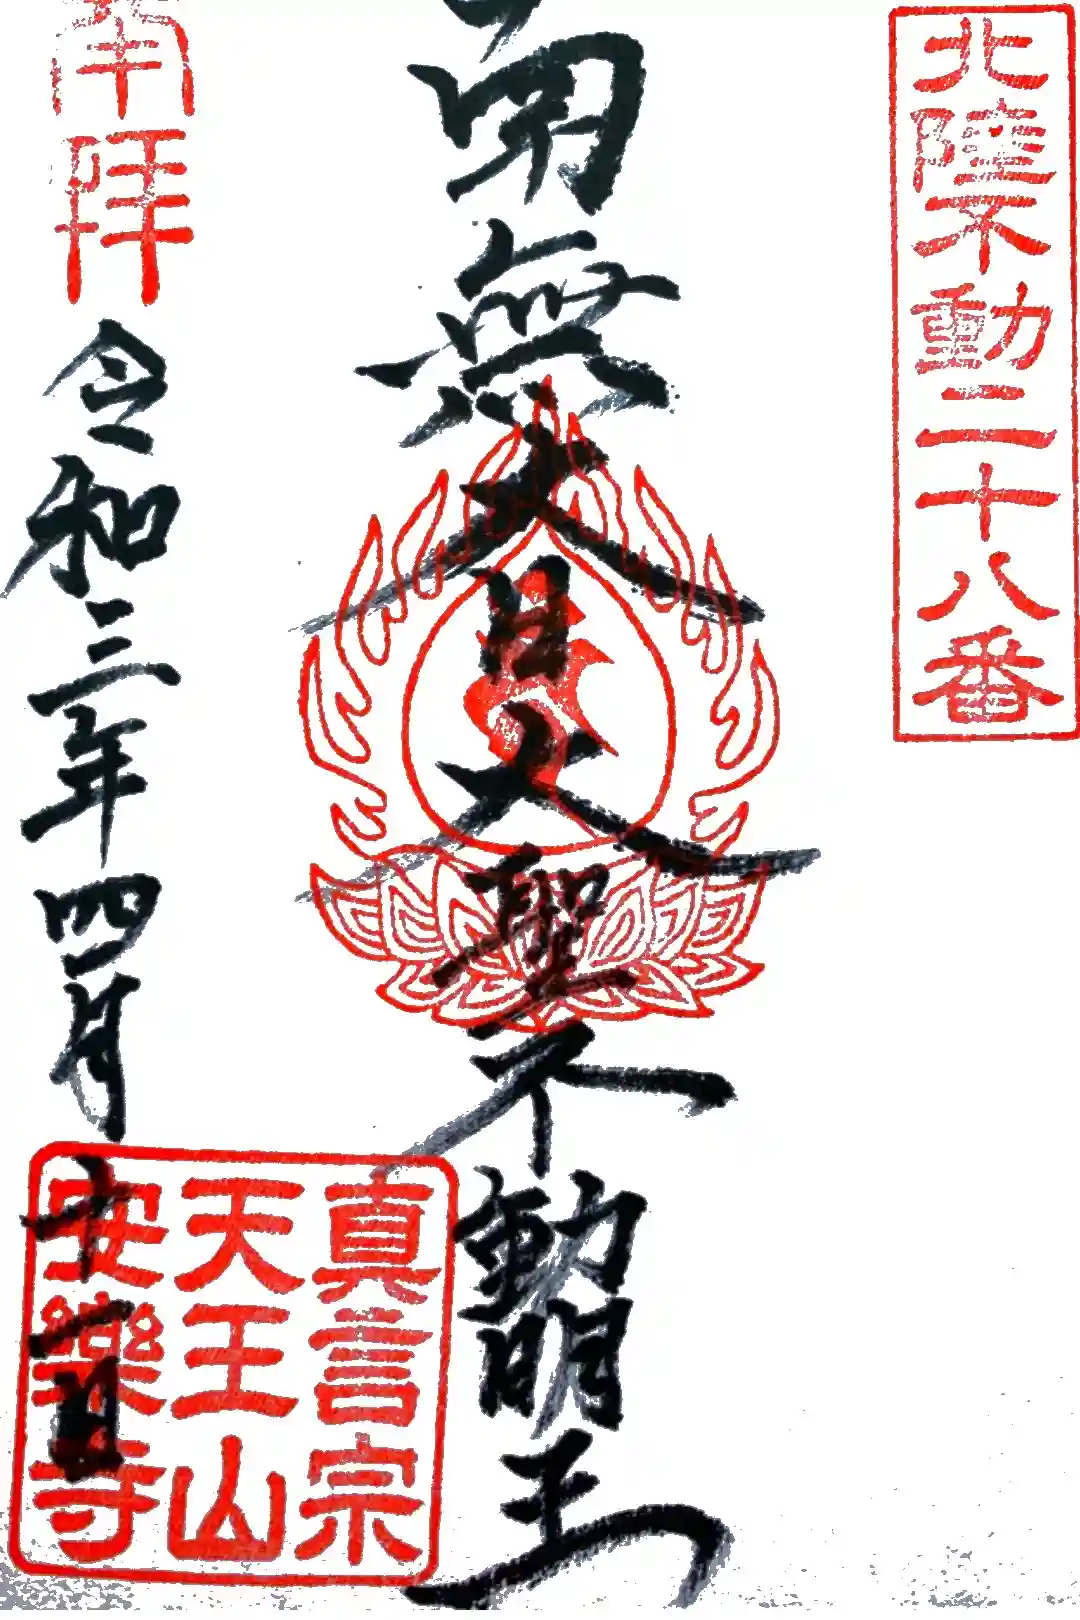 北陸不動二十八番
南無大日大聖不動明王
奉拝
令和三年四月十一日
真言宗
天王山
安樂寺